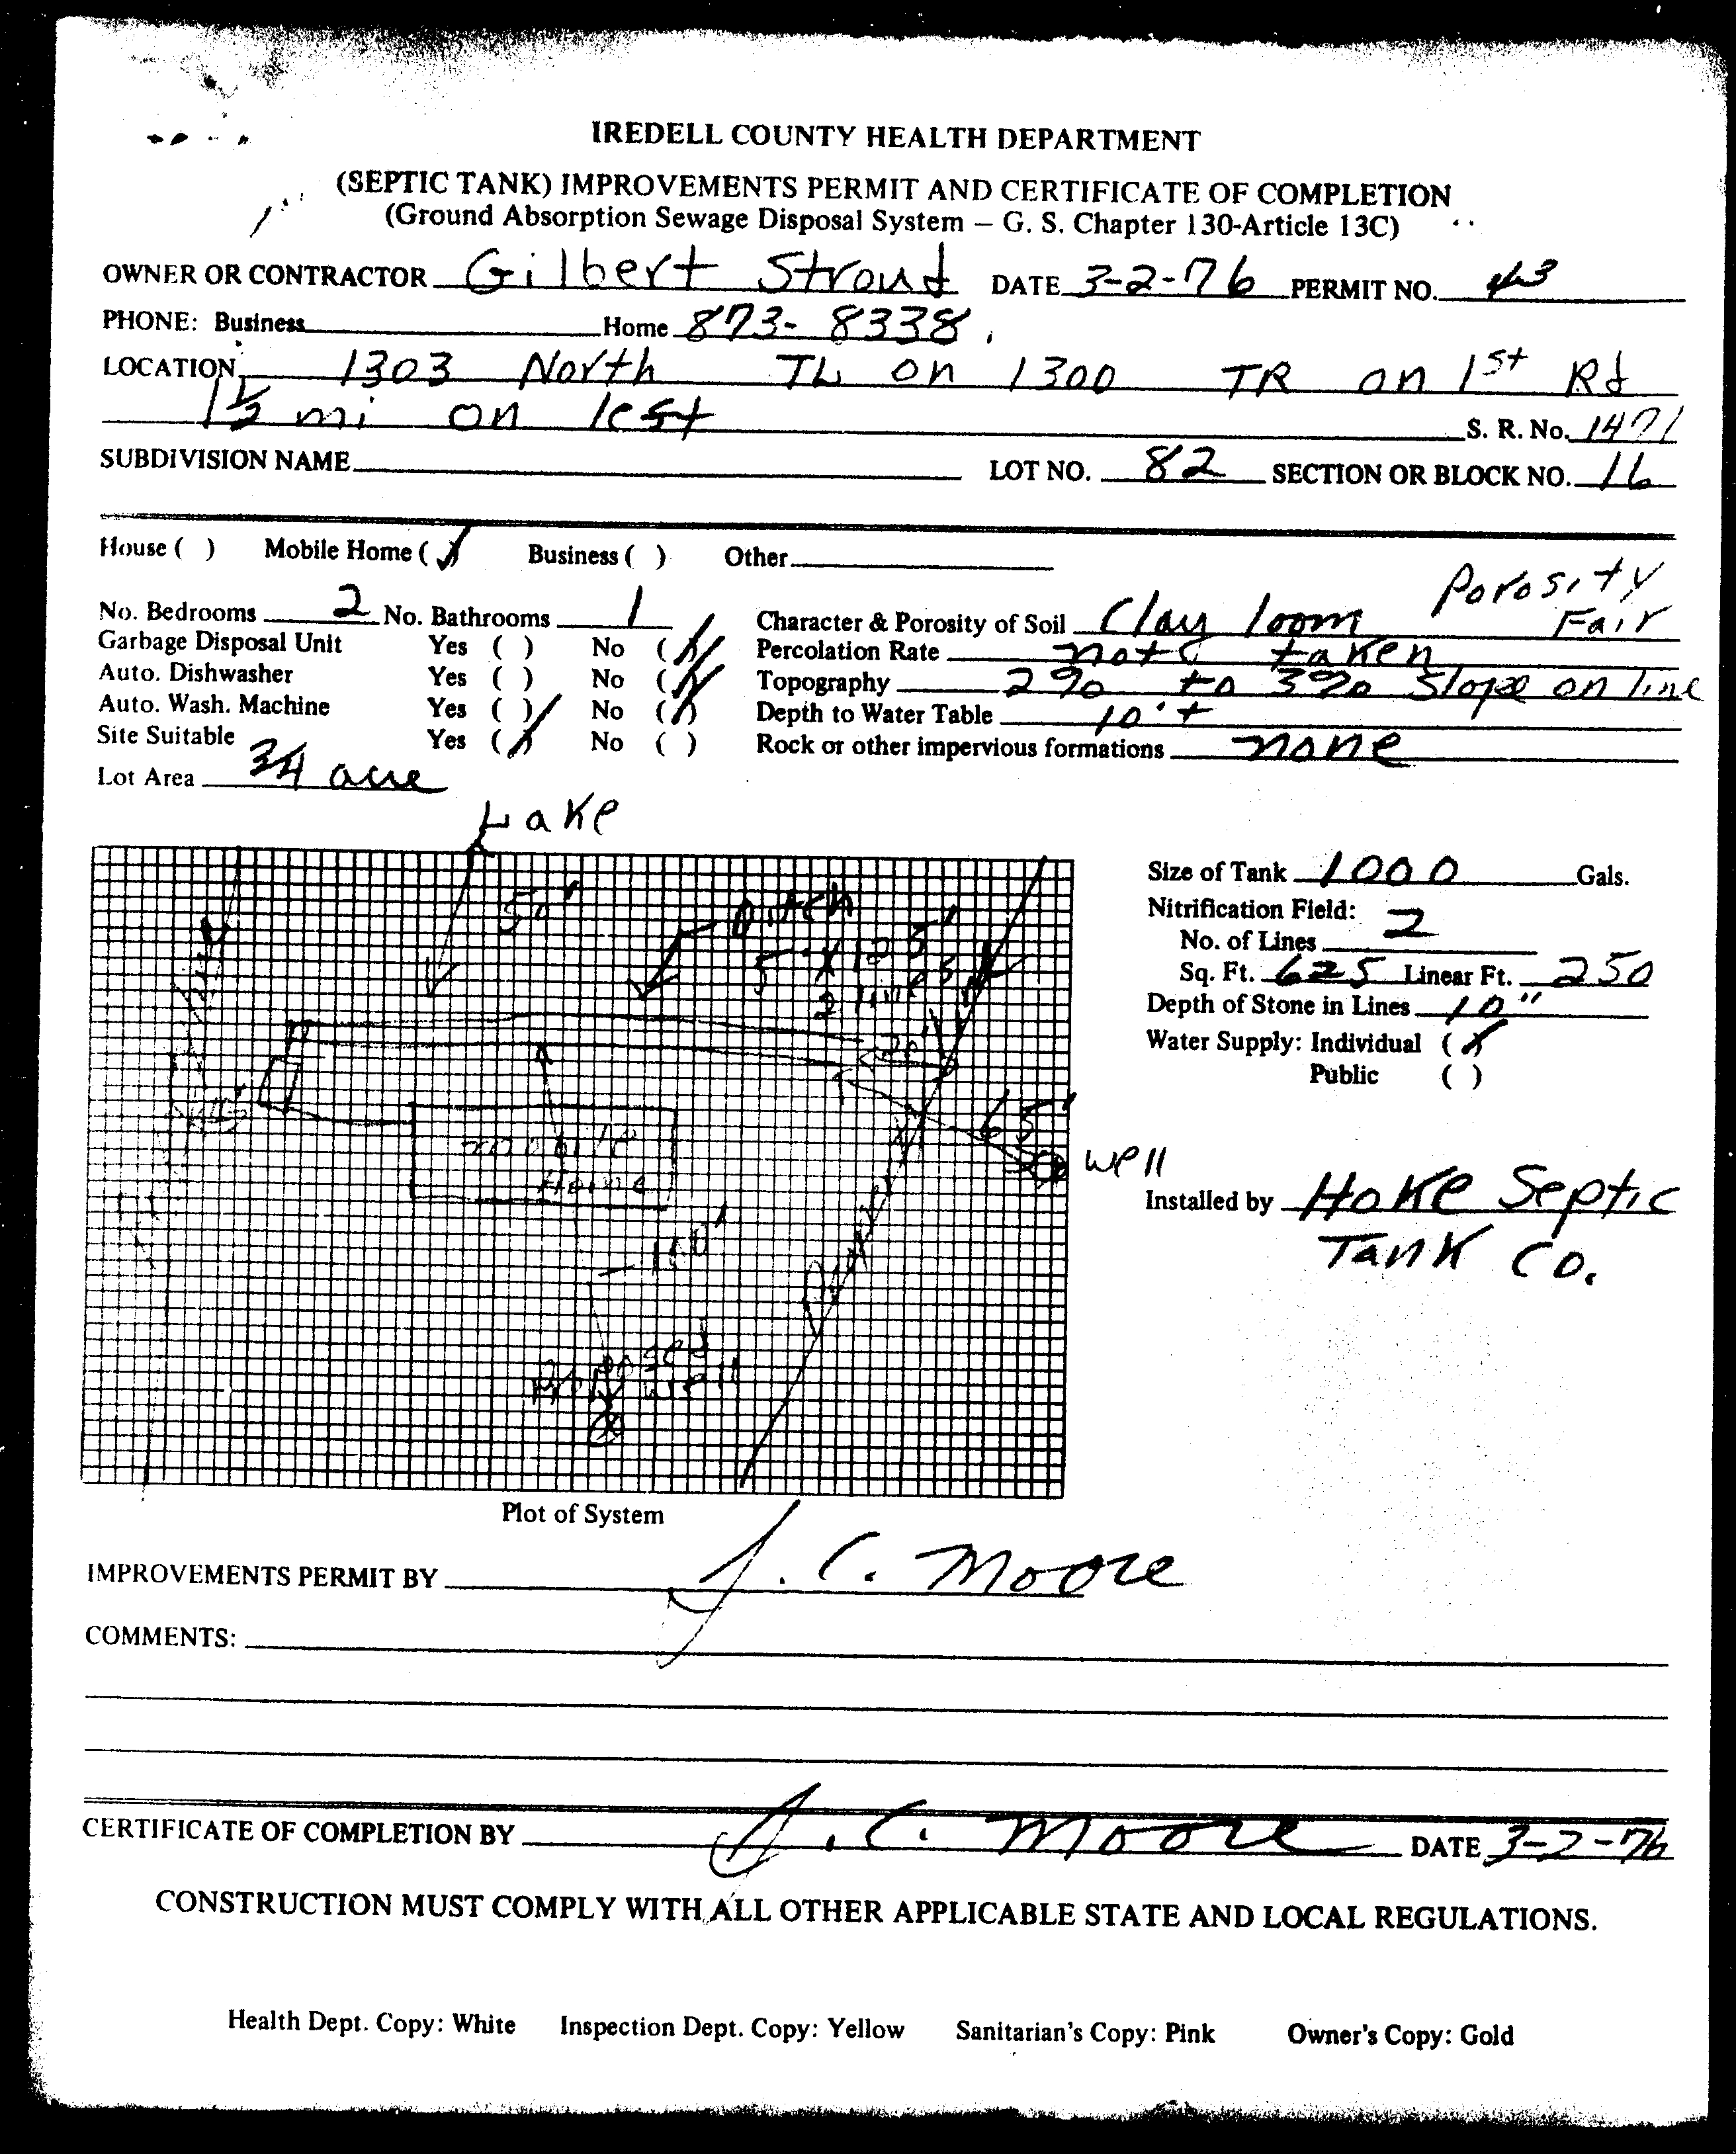 IREDELL COUNTY HEALTH DEPARTMENT
(SEPTIC TANK) IMPROVEMENTS PERMIT AND CERTIFICATE OF COMPLETION
(Ground Absorption Sewage Disposal System – G. S. Chapter 130-Article 13C)
OWNER OR CONTRACTOR Gilbert Stroud DATE 3-2-76 PERMIT NO. 43
PHONE: Business Home 873-8338
LOCATION 1303 North TL on 1300 TR on 1st Rd
1½ mi on left S. R. No. 1471
SUBDIVISION NAME LOT NO. 82 SECTION OR BLOCK NO. 16
House ( ) Mobile Home (X) Business ( ) Other
Porosity
No. Bedrooms 2 No. Bathrooms 1 Character & Porosity of Soil Clay loom Fair
Garbage Disposal Unit Yes ( ) No (X) Percolation Rate not taken
Auto. Dishwasher Yes ( ) No (X) Topography 2% to 3% Slope on line
Auto. Wash. Machine Yes ( ) No (X) Depth to Water Table 10'+
Site Suitable Yes (X) No ( ) Rock or other impervious formations none
Lot Area 3/4 acre
Lake
50'
Ditch
5 X 125'
2 lines
mobile
Home
65'
well
110'
Proposed
well
Size of Tank 1000 Gals.
Nitrification Field:
No. of Lines 2
Sq. Ft. 625 Linear Ft. 250
Depth of Stone in Lines 10"
Water Supply: Individual (X)
Public ( )
Installed by Hoke Septic
Tank Co.
Plot of System
IMPROVEMENTS PERMIT BY J. C. Moore
COMMENTS:
CERTIFICATE OF COMPLETION BY J. C. Moore DATE 3-2-76
CONSTRUCTION MUST COMPLY WITH ALL OTHER APPLICABLE STATE AND LOCAL REGULATIONS.
Health Dept. Copy: White Inspection Dept. Copy: Yellow Sanitarian's Copy: Pink Owner's Copy: Gold